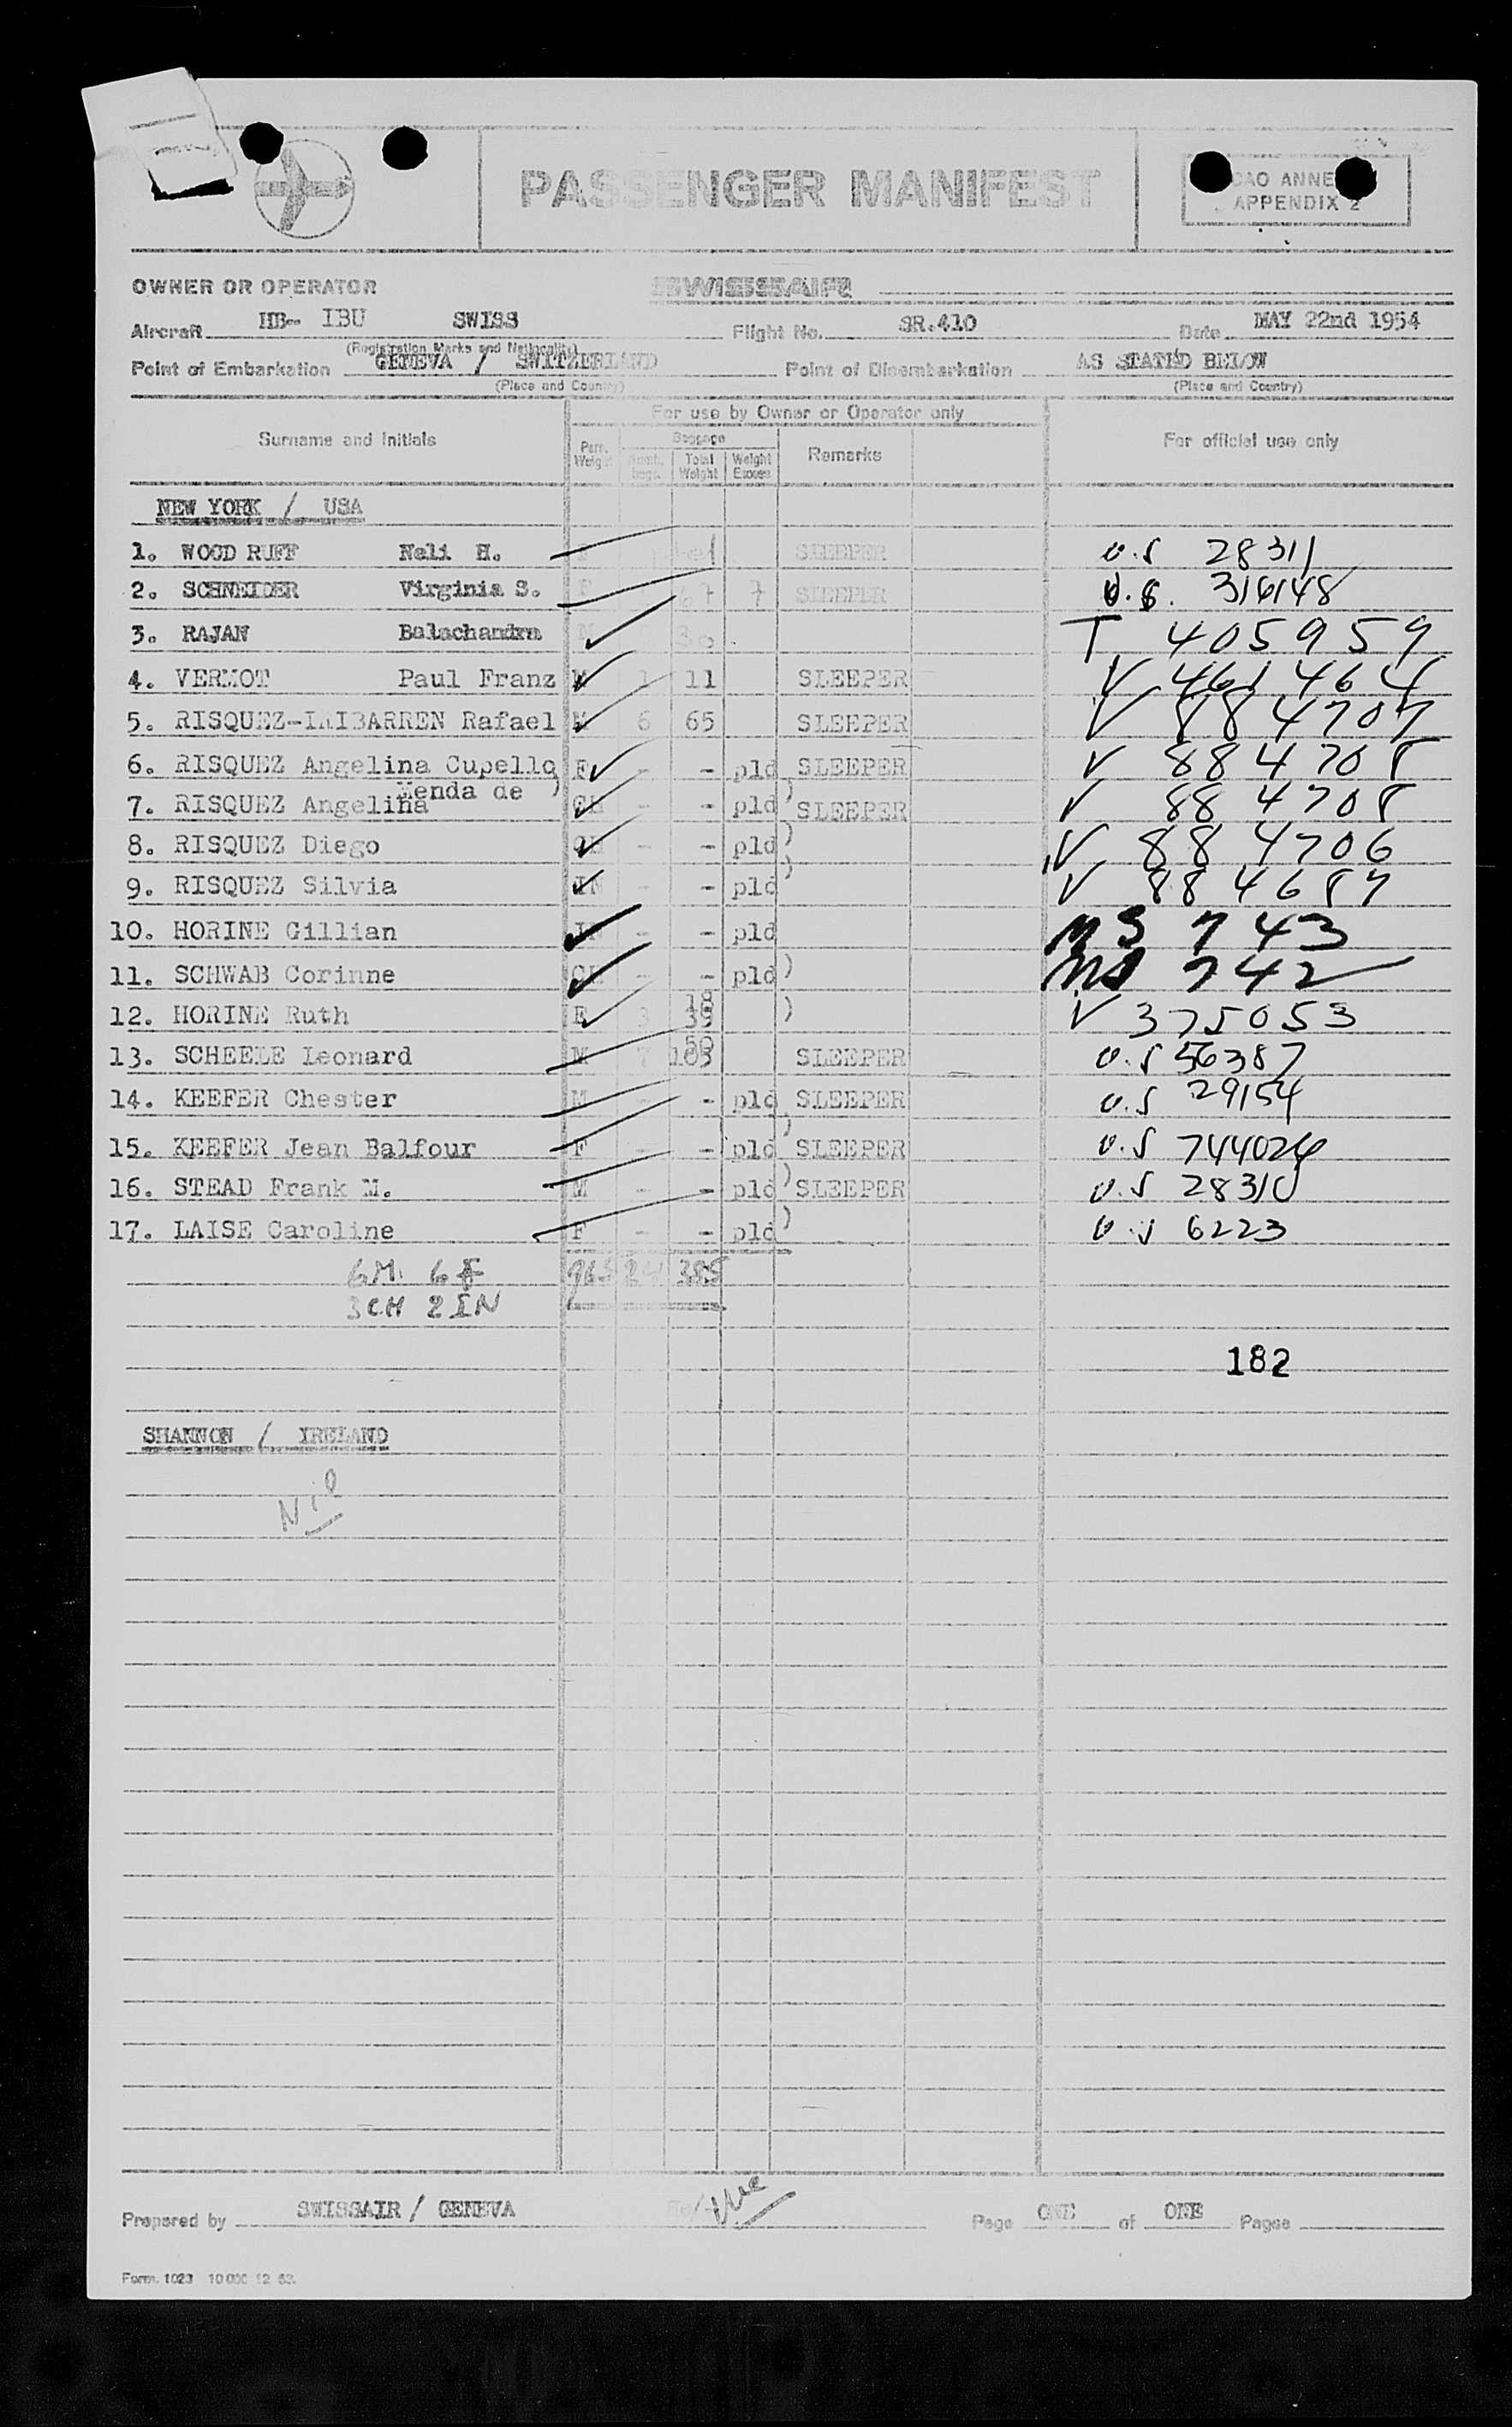 PASSENGER MANIFEST
APPENDIX 2
OWNER OR OPERATOR SWISSAIR
Aircraft HB- IBU SWISS Flight No. SR.410 Date MAY 22nd 1954
(Registration Marks and Nationality)
Point of Embarkation GENEVA / SWITZERLAND Point of Disembarkation AS STATED BELOW
(Place and Country) (Place and Country)
For use by Owner or Operator only
Surname and Initials Baggage Remarks For official use only
Total Weight Weight Excess
NEW YORK / USA
1. WOOD RUFF Neli H. SLEEPER U.S 28311
2. SCHNEIDER Virginia S. 67 7 SLEEPER U.S. 316148
3. RAJAN Balachandra 30 T 405959
4. VERMOT Paul Franz M 1 11 SLEEPER V 4614664
5. RISQUEZ-IRIBARREN Rafael M 6 65 SLEEPER V 884707
6. RISQUEZ Angelina Cupello F - - pld SLEEPER V 884708
Menda de )
7. RISQUEZ Angelina CH - - pld ) SLEEPER V 884708
8. RISQUEZ Diego CH - - pld ) V 884706
9. RISQUEZ Silvia IN - - pld ) V 884687
10. HORINE Gillian IN - - pld MS 743
11. SCHWAB Corinne CH - - pld ) MS 742
12. HORINE Ruth F 3 18 ) V 375053
13. SCHEELE Leonard M 7 50 103 SLEEPER U.S 56387
14. KEEFER Chester M - - pld SLEEPER U.S 29154
15. KEEFER Jean Balfour F - - pld ) SLEEPER U.S 744026
16. STEAD Frank M. M - - pld ) SLEEPER U.S 28310
17. LAISE Caroline F - - pld ) U.S 6223
6M. 6F 965 24 385
3CH 2IN
182
SHANNON / IRELAND
Nil
Prepared by SWISSAIR / GENEVA Page ONE of ONE Pages
Form. 1023 10 000